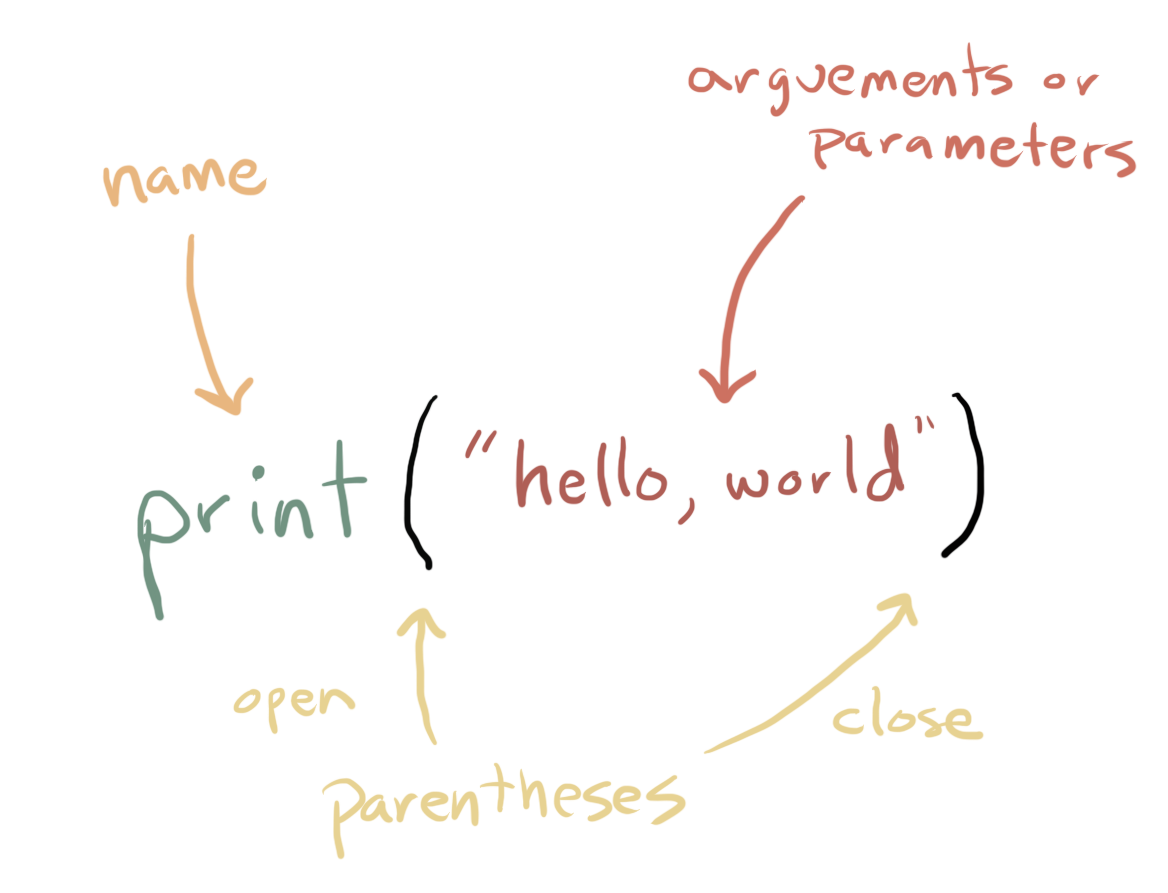 arguements or
parameters
name
print("hello, world")
open
close
parentheses